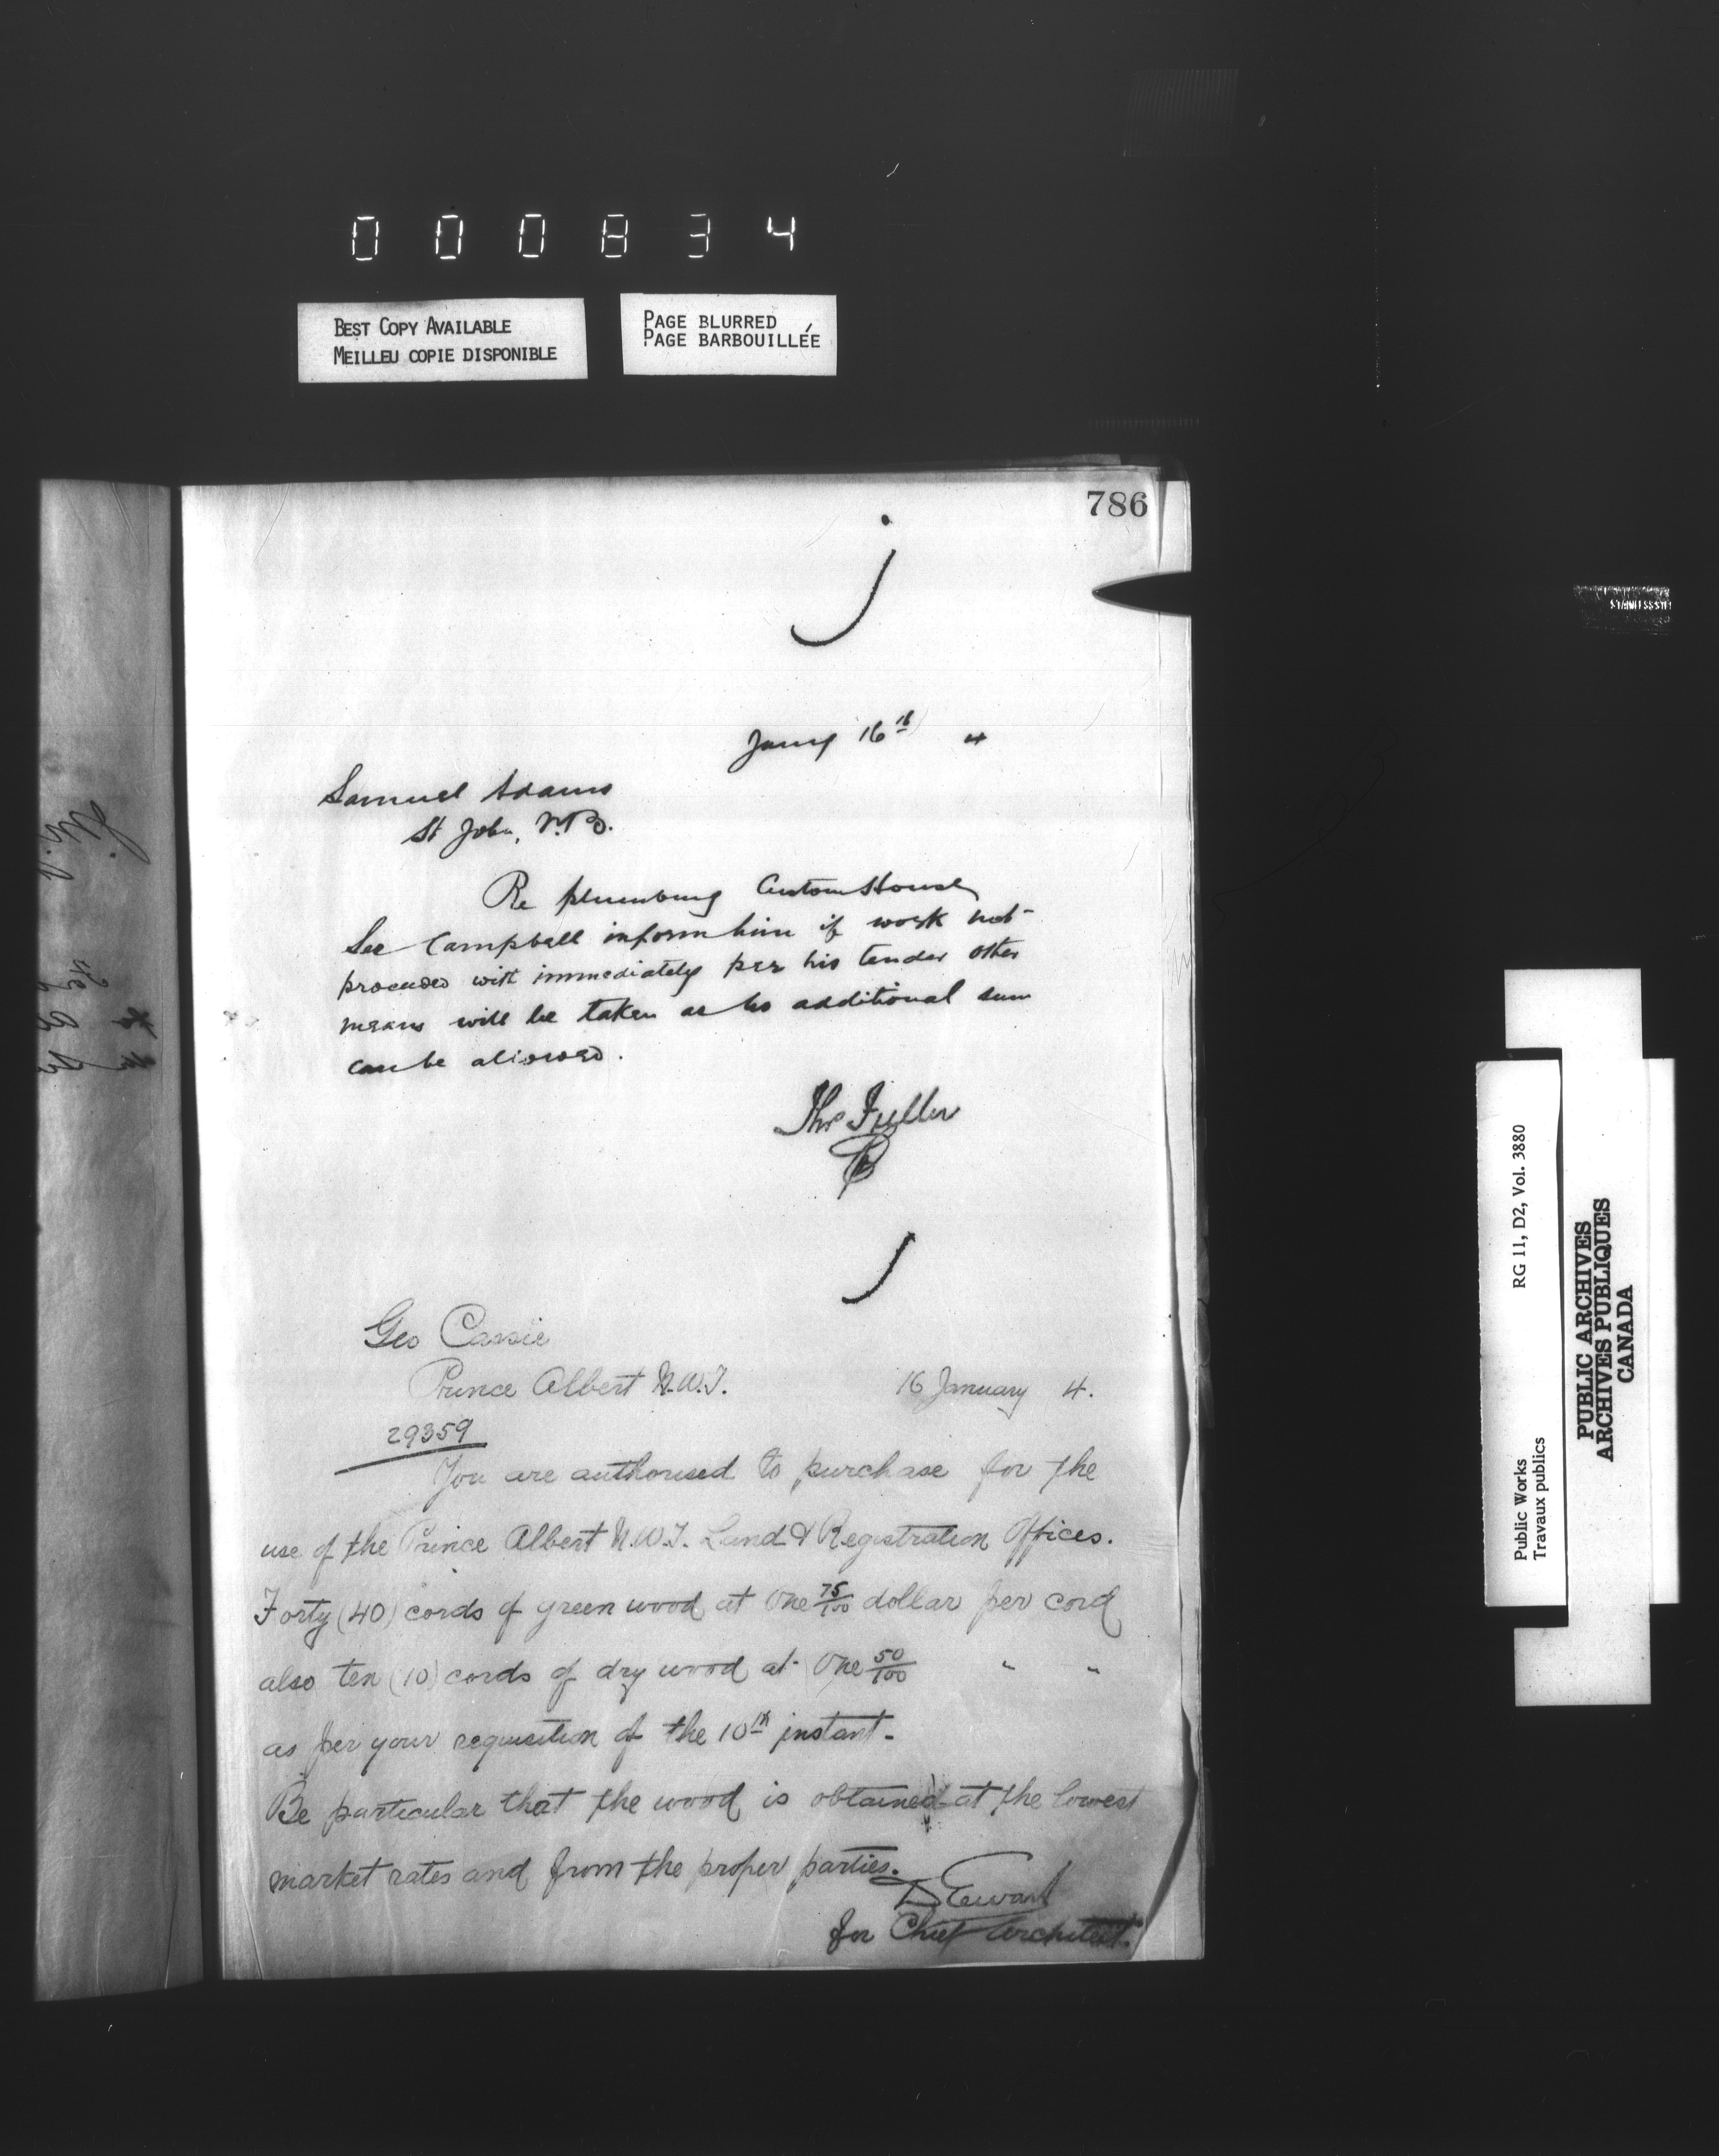 000834
BEST COPY AVAILABLE
MEILLEU COPIE DISPONIBLE
PAGE BLURRED
PAGE BARBOUILLÉE
786
Jany 16th 4
Samuel Adams
St John, N.B.
Re plumbing Custom House
See Campbell inform him if work not
proceeded with immediately per his tender other
means will be taken as no additional sum
can be allowed.
Thos Fuller
Geo Cassie
Prince Albert N.W.T. 16 January 4.
29359
You are authorised to purchase for the
use of the Prince Albert N.W.T. Land & Registration Offices.
Forty (40) cords of green wood at One 75/100 dollar per cord
also ten (10) cords of dry wood at One 50/100 " "
as per your requisition of the 10th instant.
Be particular that the wood is obtained at the lowest
market rates and from the proper parties.
D Ewart
for Chief Architect.
Public Works
Travaux publics
RG 11, D2, Vol. 3880
PUBLIC ARCHIVES
ARCHIVES PUBLIQUES
CANADA